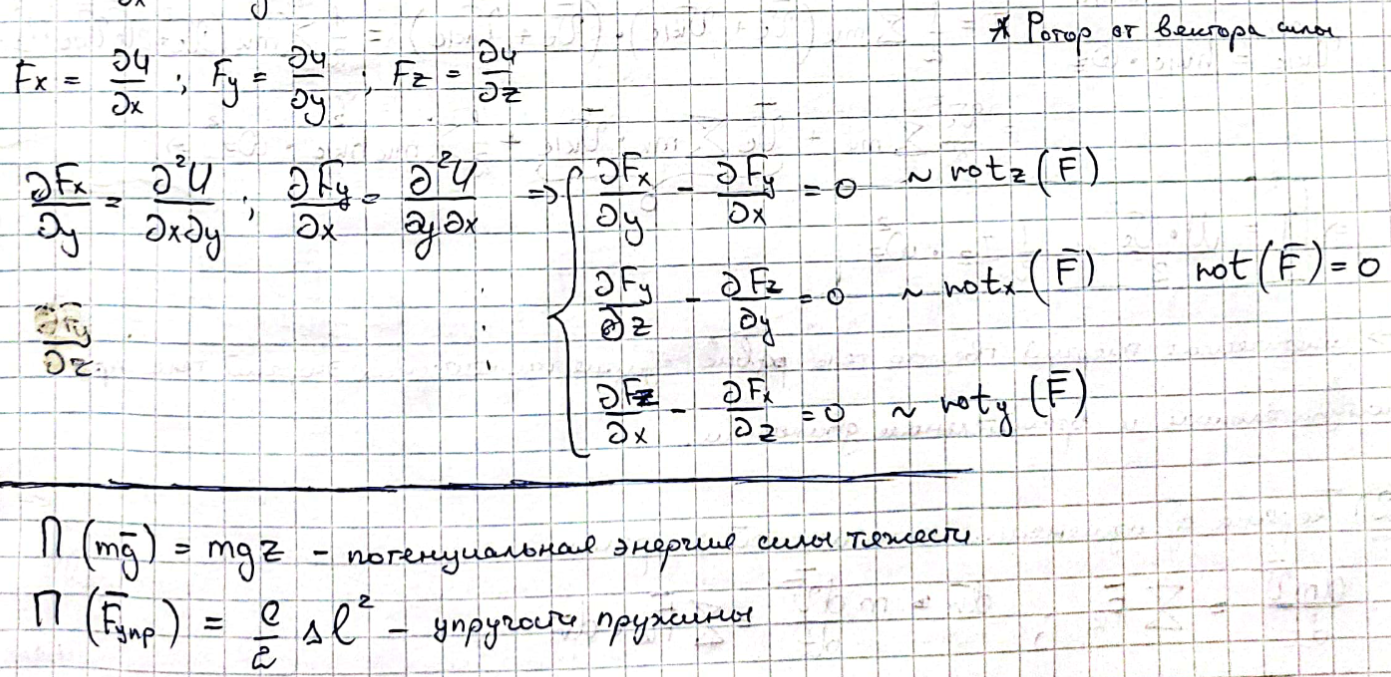 * Ротор от вектора силы
Fx = ∂U/∂x ; Fy = ∂U/∂y ; Fz = ∂U/∂z
∂Fx/∂y = ∂²U/∂x∂y ; ∂Fy/∂x = ∂²U/∂y∂x ⇒ { ∂Fx/∂y - ∂Fy/∂x = 0 ~ rotz (F̄)
∂Fy/∂z - ∂Fz/∂y = 0 ~ rotx (F̄) rot (F̄) = 0
∂Fy/∂z
∂Fz/∂x - ∂Fx/∂z = 0 ~ roty (F̄)
П (mḡ) = mgz - потенциальная энергия силы тяжести
П (F̄упр) = c/2 Δl² - упругости пружины